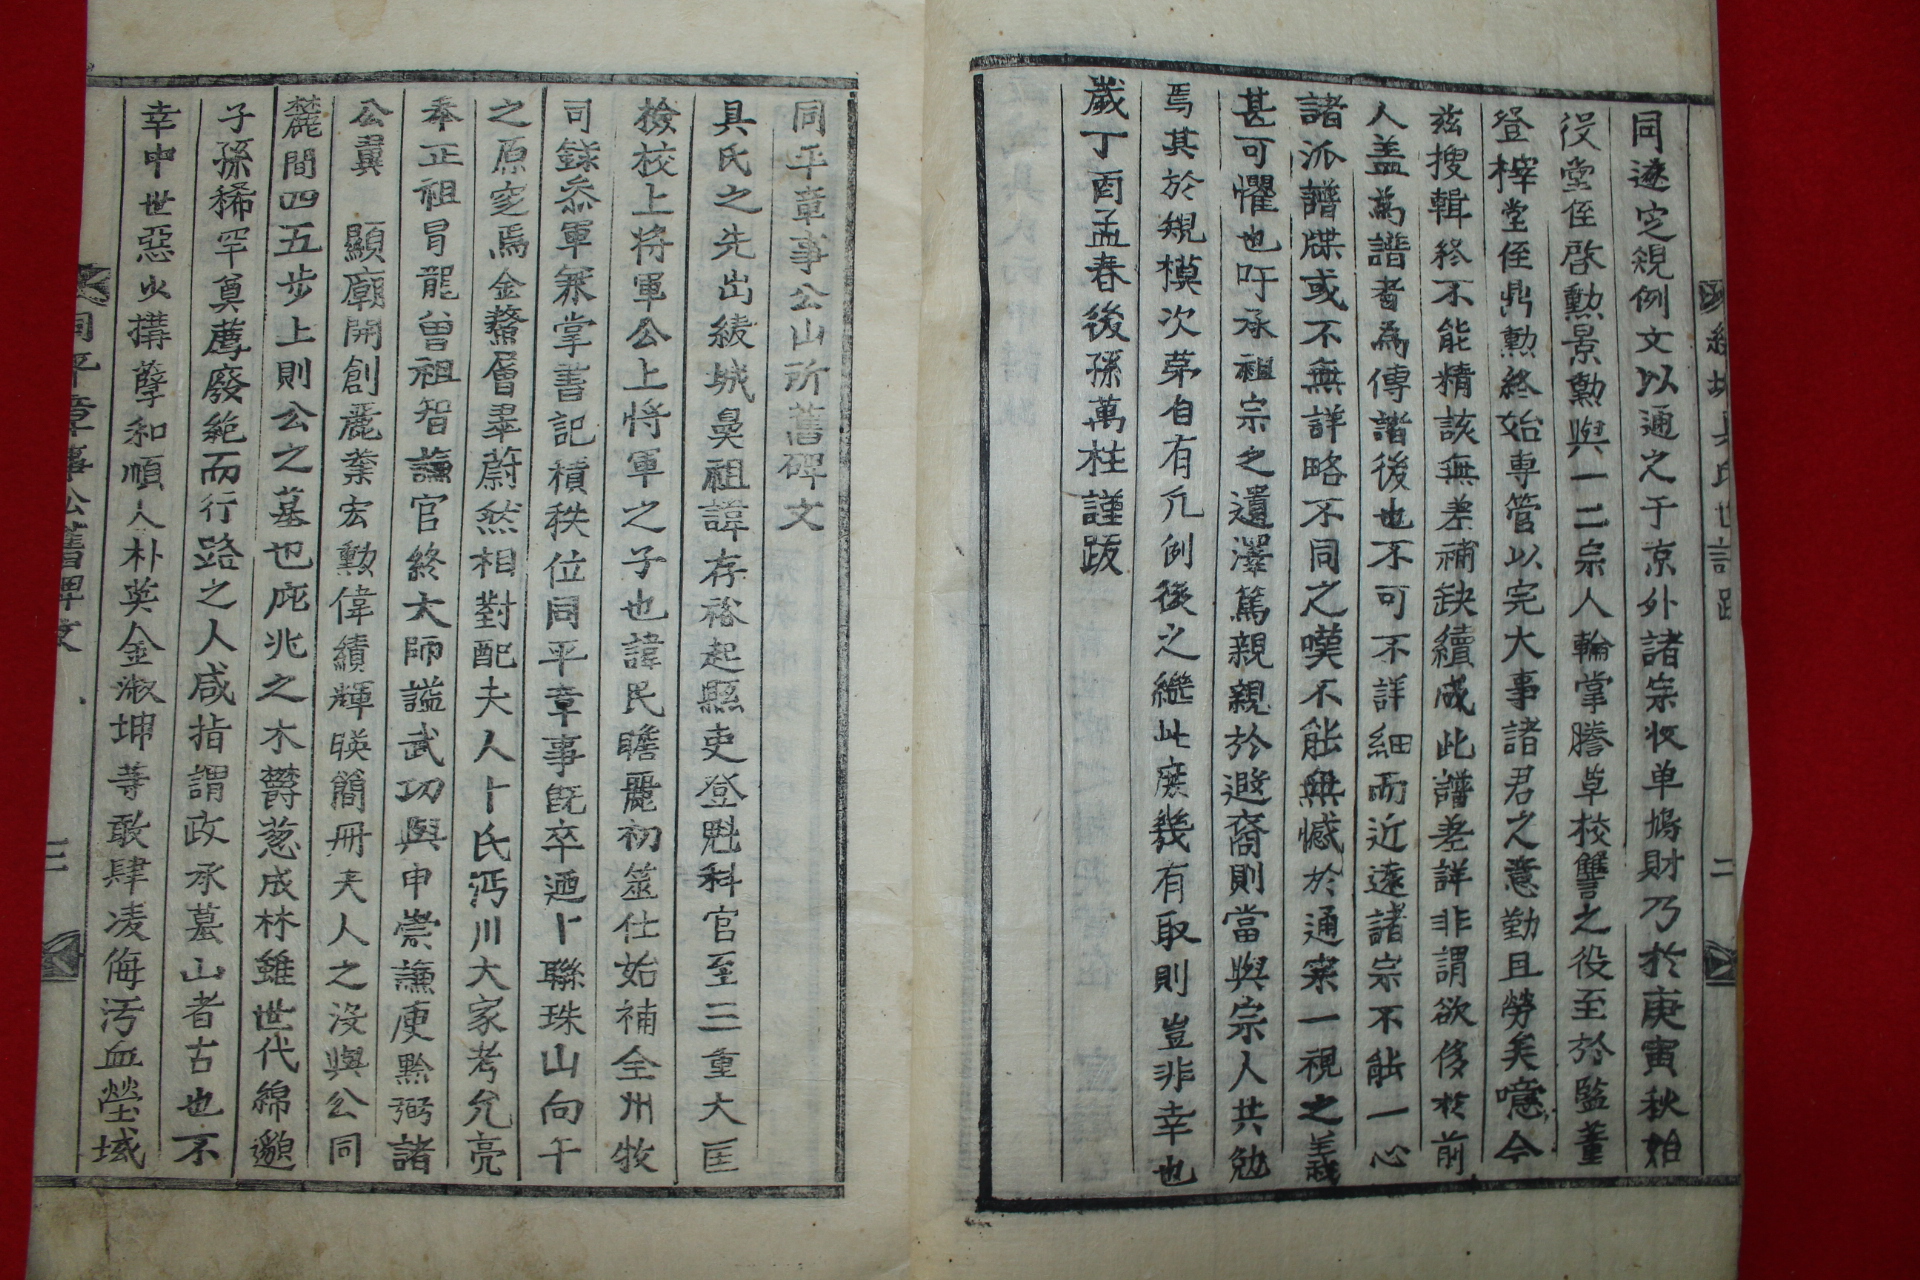 綾城具氏世譜跋 二
同遂定規例文以通之于京外諸宗收单鳩財乃於庚寅秋始
役堂侄啓勳景勳與一二宗人輪掌謄草校讐之役至於監董
登梓堂侄鼎勳終始專管以完大事諸君之意勤且勞矣噫今
玆搜輯終不能精該無差補缺續成此譜差詳非謂欲侈於前
人盖為譜者為傳諸後也不可不詳細而近遠諸宗不能一心
諸派譜牒或不無詳略不同之嘆不能無憾於通宗一視之義
甚可懼也吁承祖宗之遺澤篤親親於遐裔則當與宗人共勉
焉其於規模次苐自有凡例後之繼此庶幾有取則豈非幸也
歲丁酉孟春後孫萬柱謹跋
同平章事公山所舊碑文
具氏之先出綾城鼻祖諱存裕起縣吏登魁科官至三重大匡
檢校上將軍公上將軍之子也諱民瞻麗初筮仕始補全州牧
司錄叅軍兼掌書記積秩位同平章事旣卒迺卜聯珠山向午
之原窆焉金鰲層翠蔚然相對配夫人卜氏沔川大家考允亮
奉正祖冒龍曾祖智謙官終太師謚武功與申崇謙庾黔弼諸
公翼　顯廟開創麗業宏勳偉績輝暎簡册夫人之沒與公同
麓間四五步上則公之墓也庇兆之木欝葱成林雖世代綿邈
子孫稀罕奠薦廢絶而行路之人咸指謂政承墓山者古也不
幸中世惡少搆孽和順人朴英金淑坤等敢肆凌侮汚血塋域
同平章事公舊碑文 三